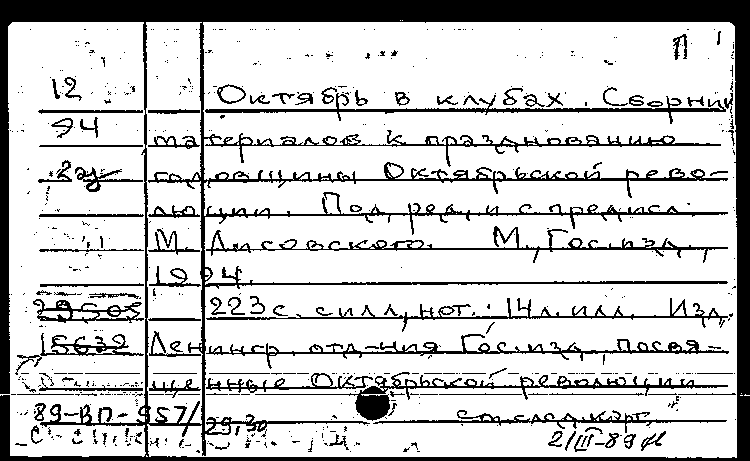 П
12 Октябрь в клубах. Сборник
94 материалов к празднованию
годовщины Октябрьской рево-
люции. Под ред. и с предисл.
М. Лисовского. М., Гос. изд.,
1924.
29505 223 с. с илл., нот.; 14 л. илл. Изд.
15632 Ленингр. отд-ния Гос. изд., посвя-
щенные Октябрьской революции
89-ВП-957/ 29,30 см. след. карт.
2/III-89